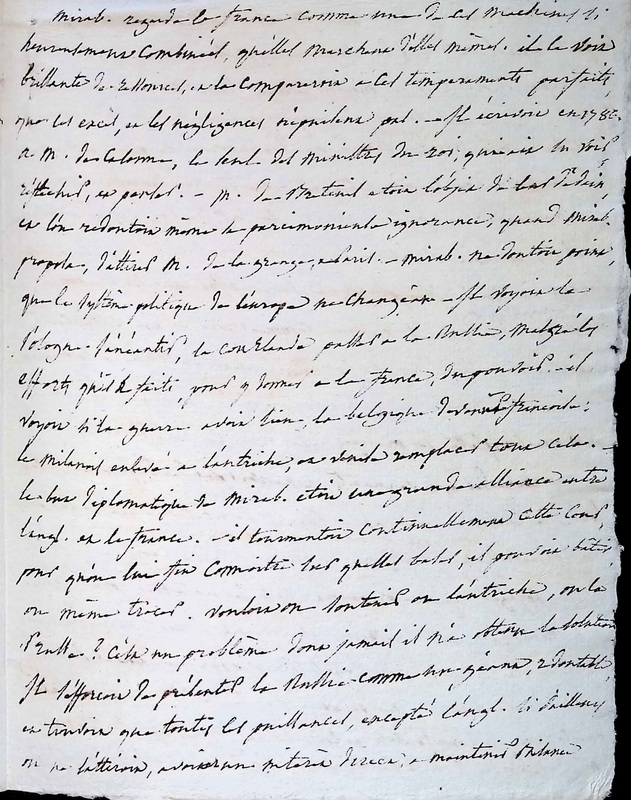 mirab. regarde la france comme une de ces machines si
heureusement combinées, qu'elles marchent d'elles mêmes. il la voit
brillante de ressources, et la comparoit a ces temperaments parfaits,
que les excès, et les négligences n'épuisent pas. - Il écrivoit en 1786.
a M. de Calonne, le seul des ministres du roi, qui ait su
réfléchir, et parler. - M. de Breteuil etoit l'objet de leur dédain,
et l'on redoutoit même sa parcimonieuse ignorance, quand Mirab.
proposa, d'attirer M. de la grange, a Paris. - mirab. ne doutoit point,
que le systême politique de l'europe ne changeat - Il voyoit la
Pologne s'anéantir, la Courlande passer a la Russie, malgré les
efforts qu'il a faits, pour y donner a la france, du pouvoir. - il
voyoit si la guerre avoit lieu, la belgique devenir françoise;
le Milanois enlevé a l'autriche, et venise remplacer tout cela. -
le but diplomatique de Mirab. etoit une grande alliance entre
l'angl. et la france. - il tourmentoit continuellement cette cour
pour qu'on lui fit connoitre sur quelles bases, il pouvoit bâtir
ou même tracer. vouloit on soutenir ou l'autriche, ou la
Prusse? C'est un problême dont jamais il n'a obtenu la solution
Il s'efforçoit de présenter la Russie comme un géant, redoutable
et trouvoit que toutes les puissances, excepté l'angl. si d'ailleurs
on ne l'attiroit, avoient un intérêt direct, a maintenir